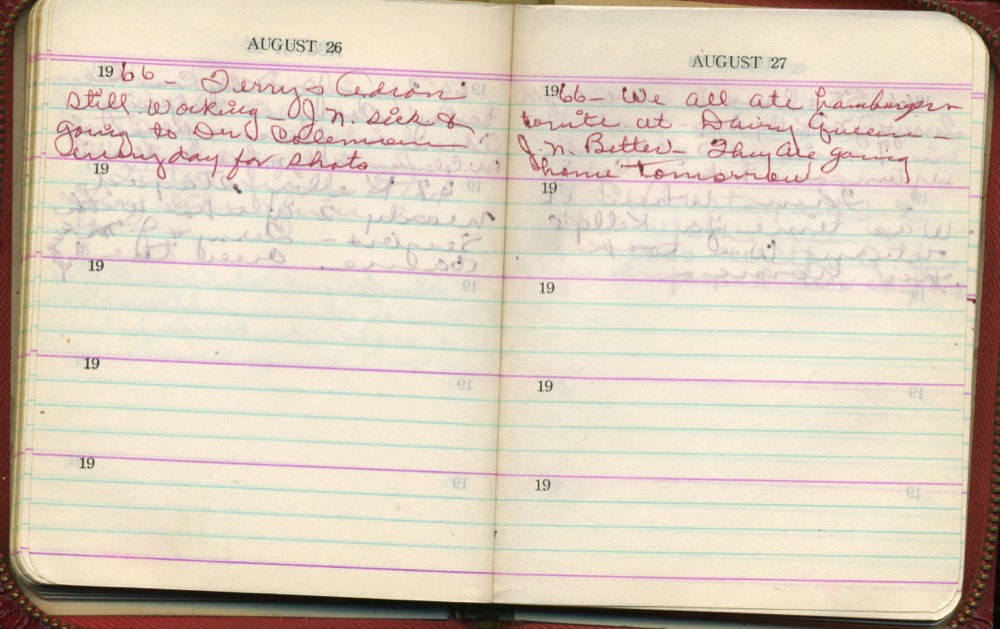 AUGUST 26
1966 - Terry & Cedron
still working - J.N. sick &
going to Dr Coleman
every day for shots
19
19
19
19
AUGUST 27
1966 - We all ate hamburgers
tonite at Dairy Queen -
J.N. Better - They are going
home tomorrow
19
19
19
19